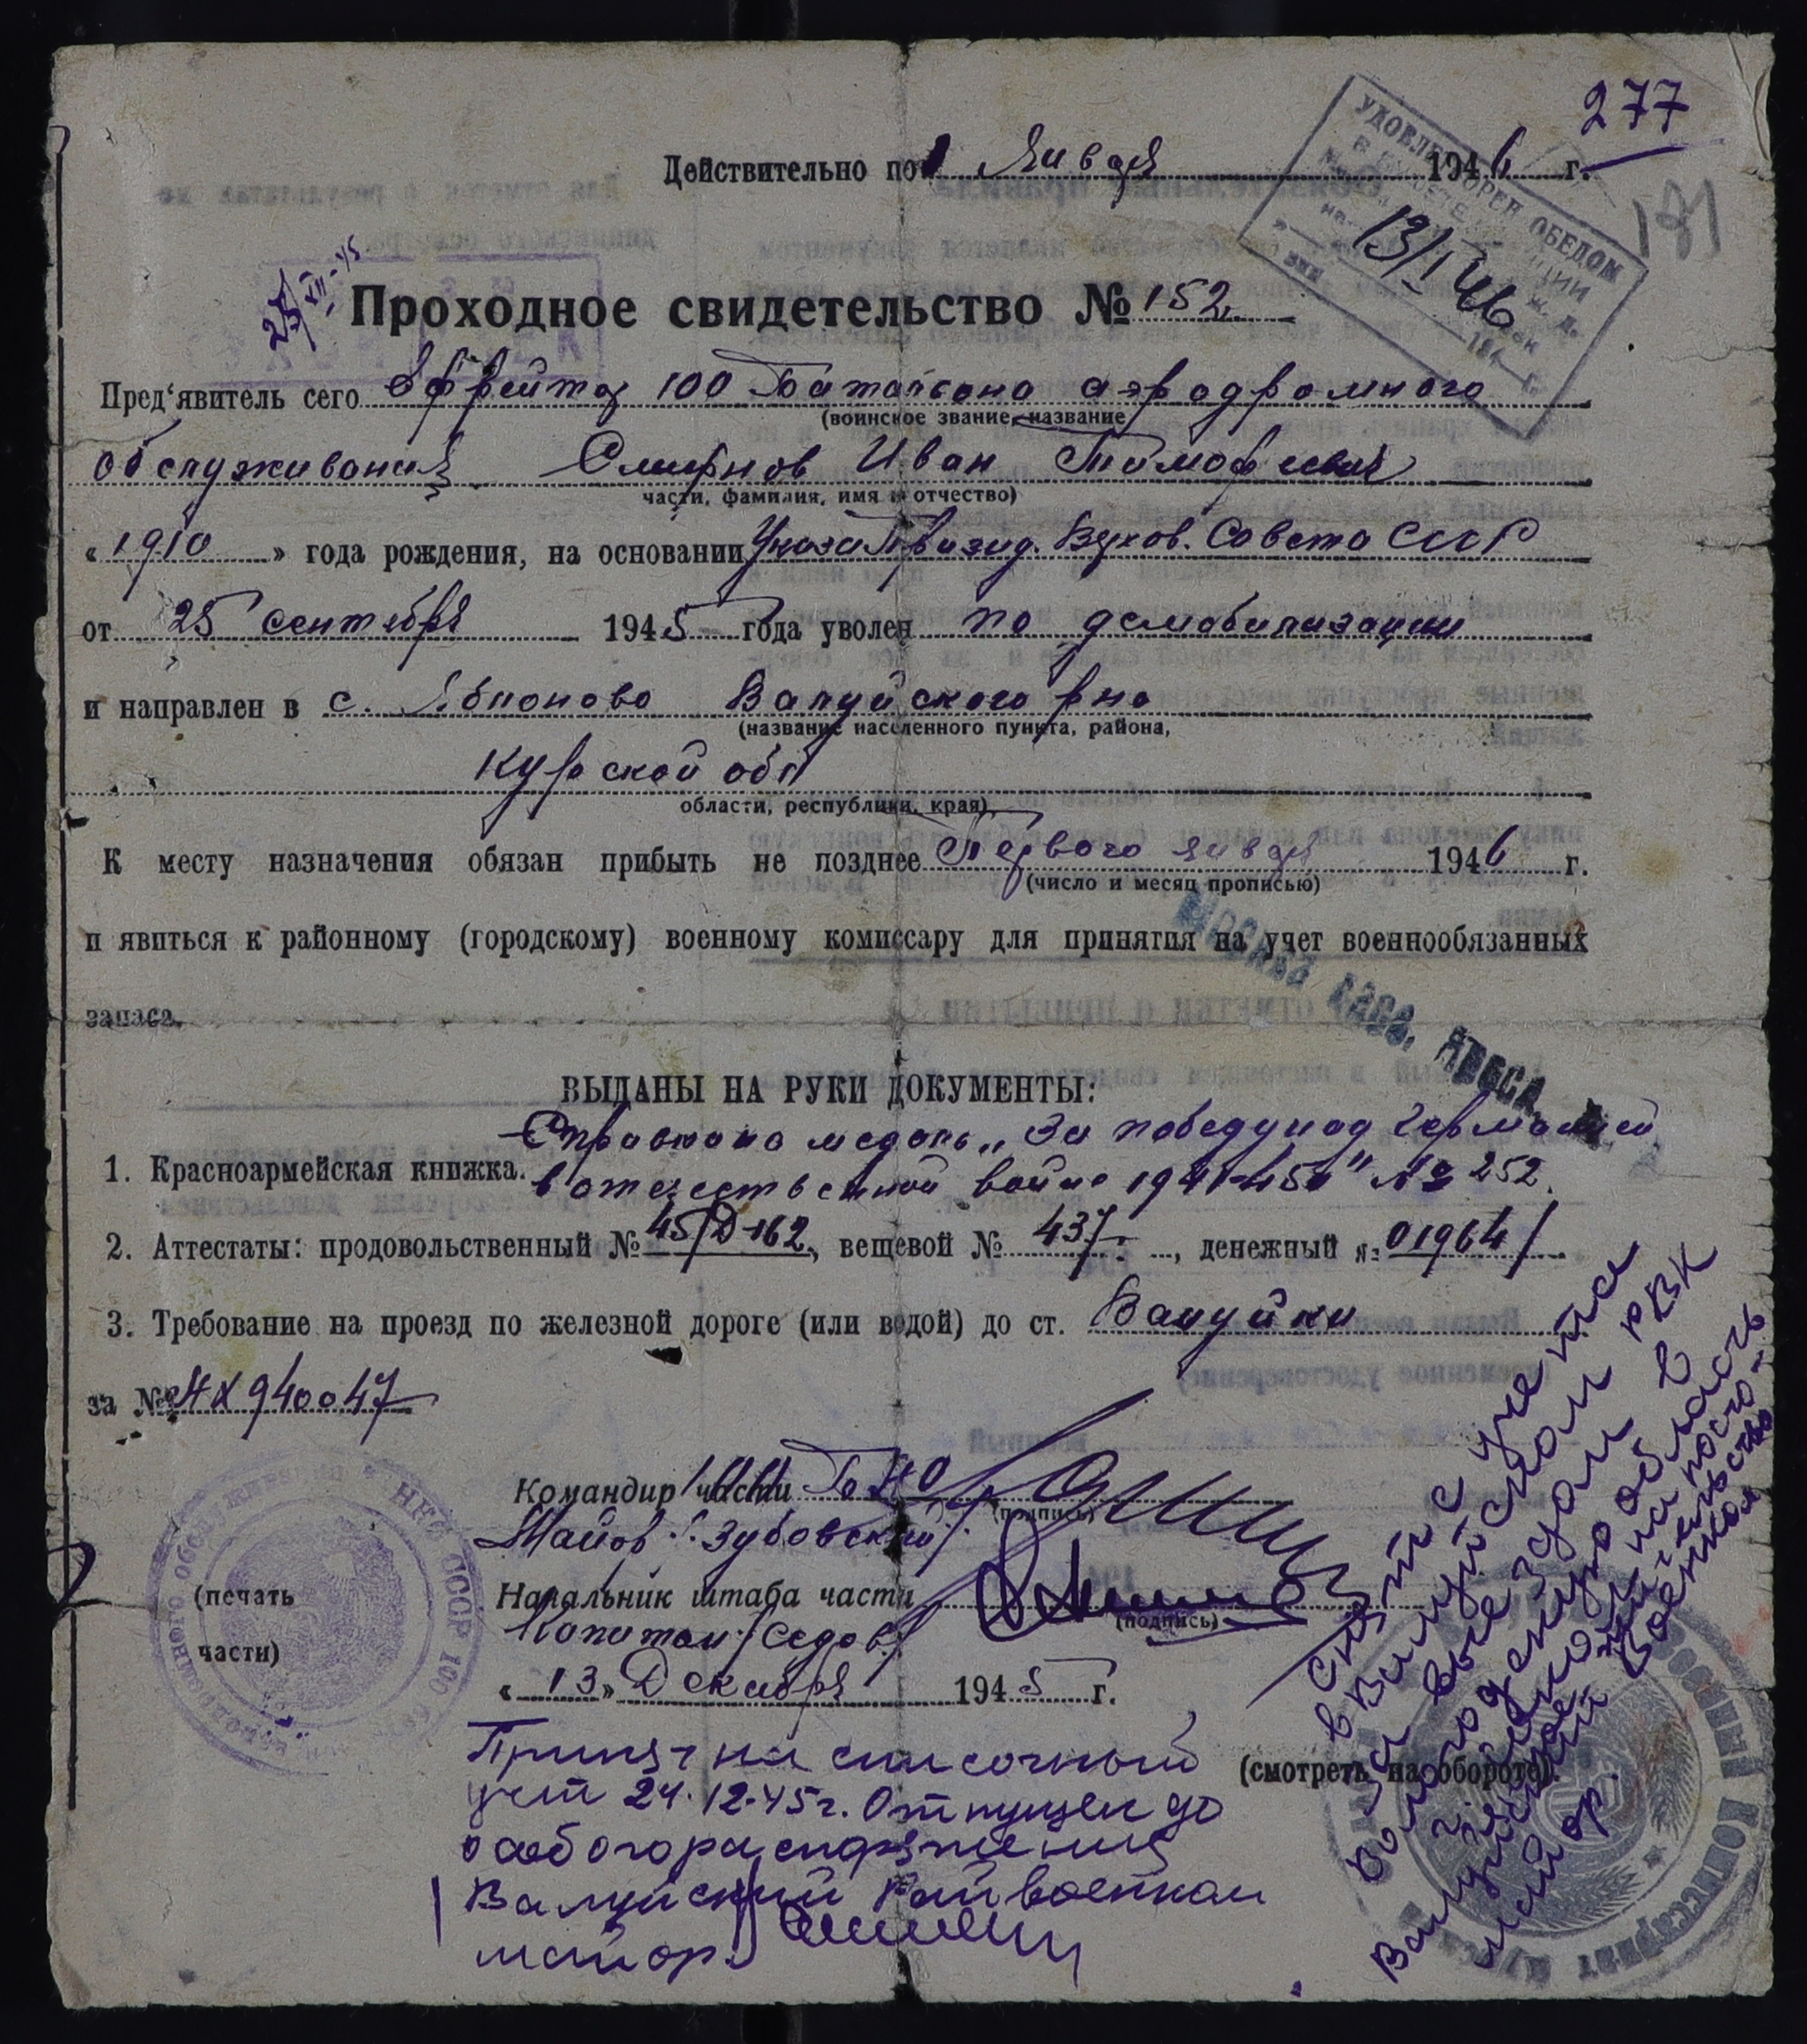 277
Действительно по 1 Января 1946 г.
181
УДОВЛЕТВОРЕН ОБЕДОМ
13/I 46
25/XII-45
Проходное свидетельство № 152
Пред'явитель сего Ефрейтор 100 Батальона аэродромного
(воинское звание, название
обслуживания Смирнов Иван Тимофеевич
части, фамилия, имя и отчество)
« 1910 » года рождения, на основании Указа Презид. Верхов. Совета СССР
от 25 сентября 1945 года уволен по демобилизации
и направлен в с. Яблоново Валуйского р-на
(название населенного пункта, района,
Курской обл
области, республики, края)
К месту назначения обязан прибыть не позднее Первого января 1946 г.
(число и месяц прописью)
и явиться к районному (городскому) военному комиссару для принятия на учет военнообязанных
запаса.
Москва
ВЫДАНЫ НА РУКИ ДОКУМЕНТЫ:
Справка на медаль „За победу над Германией
1. Красноармейская книжка. в отечественной войне 1941-45г" № 252.
2. Аттестаты: продовольственный № 45/Д-162, вещевой № 437, денежный № 01964/
3. Требование на проезд по железной дороге (или водой) до ст. Валуйки
за № 940047
Командир части БАО
(подпись)
Майор /Зубовский/
Начальник штаба части
(подпись)
Капитан /Седов/
(печать
части)
НКО СССР 100
аэродромного обслуживания
« 13 » Декабря 1945 г.
(смотреть на обороте).
Принят на списочный
учет 24.12.45г. Отпущен до
особого распоряжения
Валуйский Райвоенком
майор
Снят с учета
в Валуйском РВК
за выездом в
Вологодскую область
на посто-
янное жительство
Валуйский Военком
майор.
Комиссариат